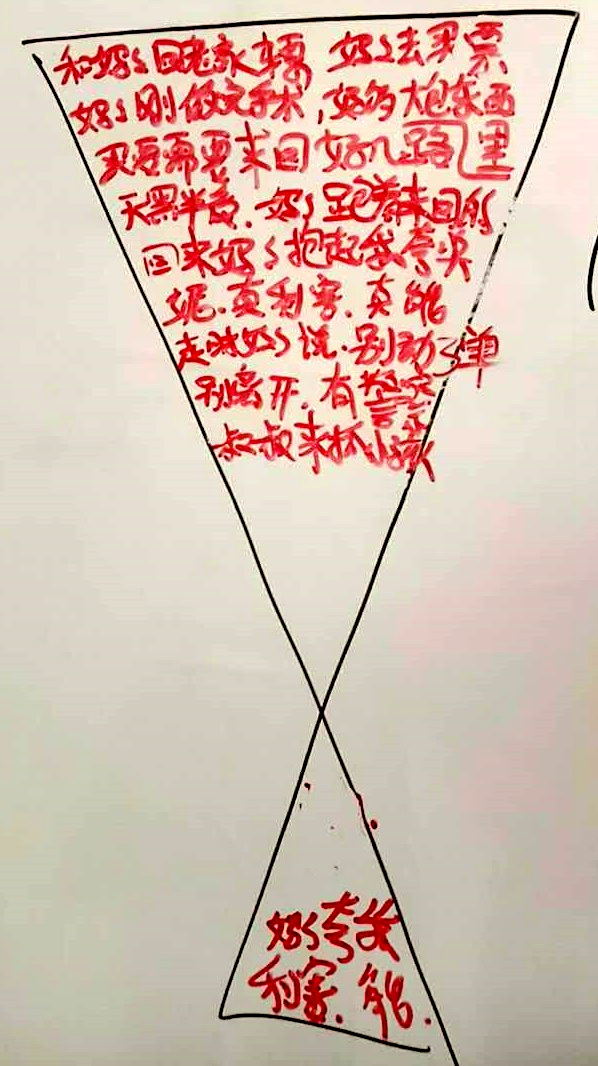 和奶奶回老家 奶奶去买票
奶奶刚做完手术,奶奶大包东西
买票需要来回好几路里
天黑半夜.奶奶跑着来回的
回来奶奶抱起我夸奖
妮.真利害.真能
走时奶奶说.别动弹
别离开.有警察
叔叔来抓小孩
奶奶夸我
利害.能.